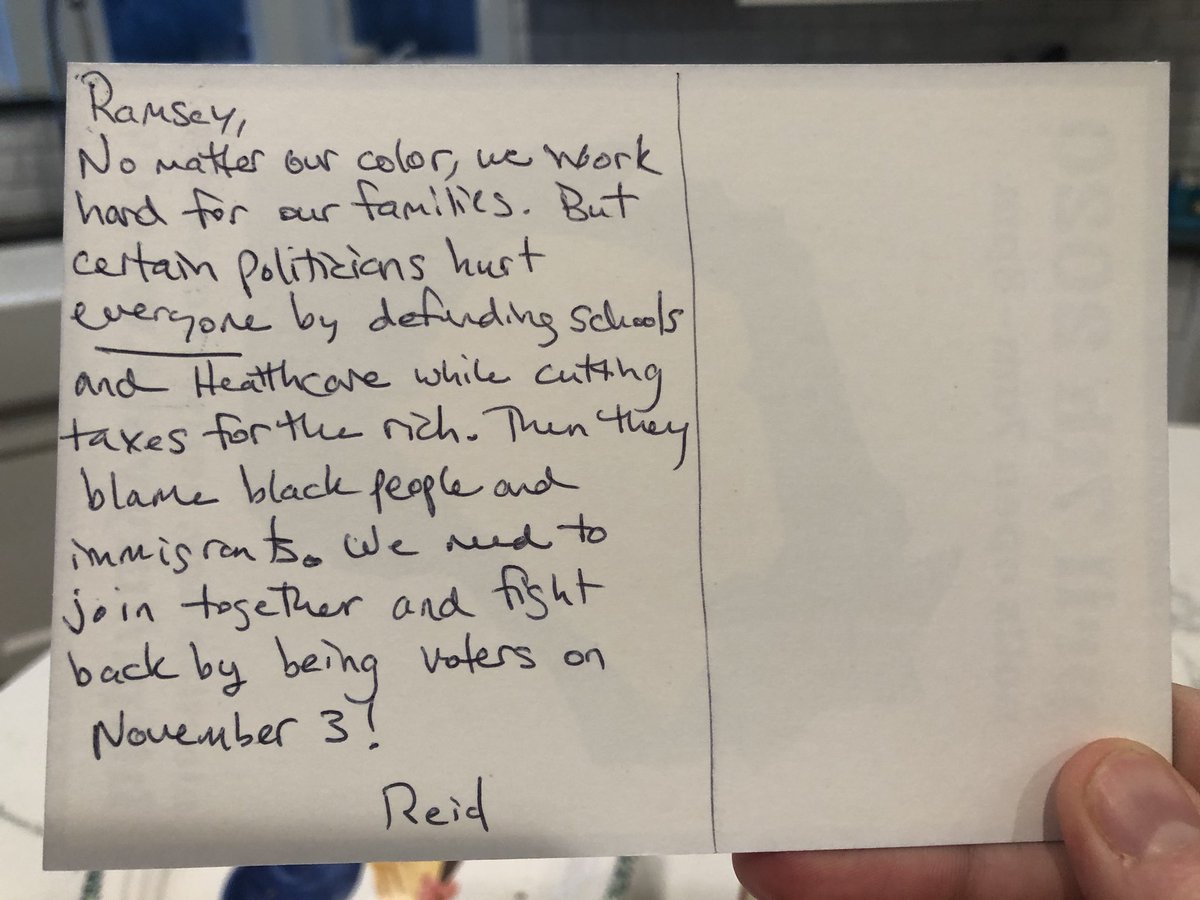 Ramsey,
No matter our color, we work
hard for our families. But
certain politicians hurt
everyone by defunding schools
and Healthcare while cutting
taxes for the rich. Then they
blame black people and
immigrants. We need to
join together and fight
back by being voters on
November 3!
Reid